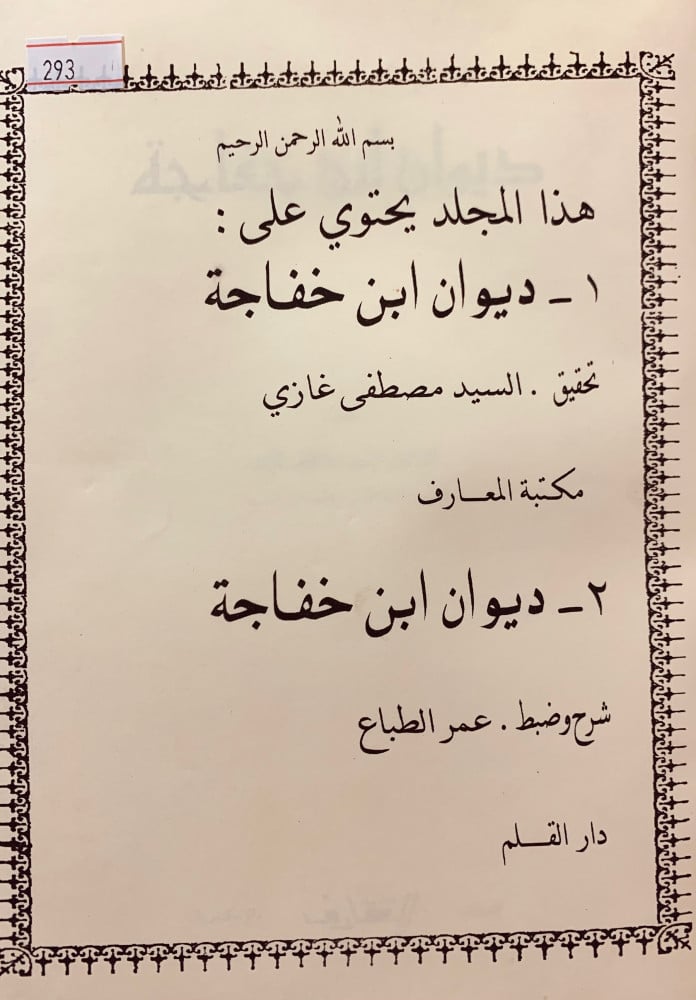 293
بسم الله الرحمن الرحيم
هذا المجلد يحتوي على :
١ - ديوان ابن خفاجة
تحقيق . السيد مصطفى غازي
مكتبة المعارف
٢ - ديوان ابن خفاجة
شرح وضبط . عمر الطباع
دار القلم